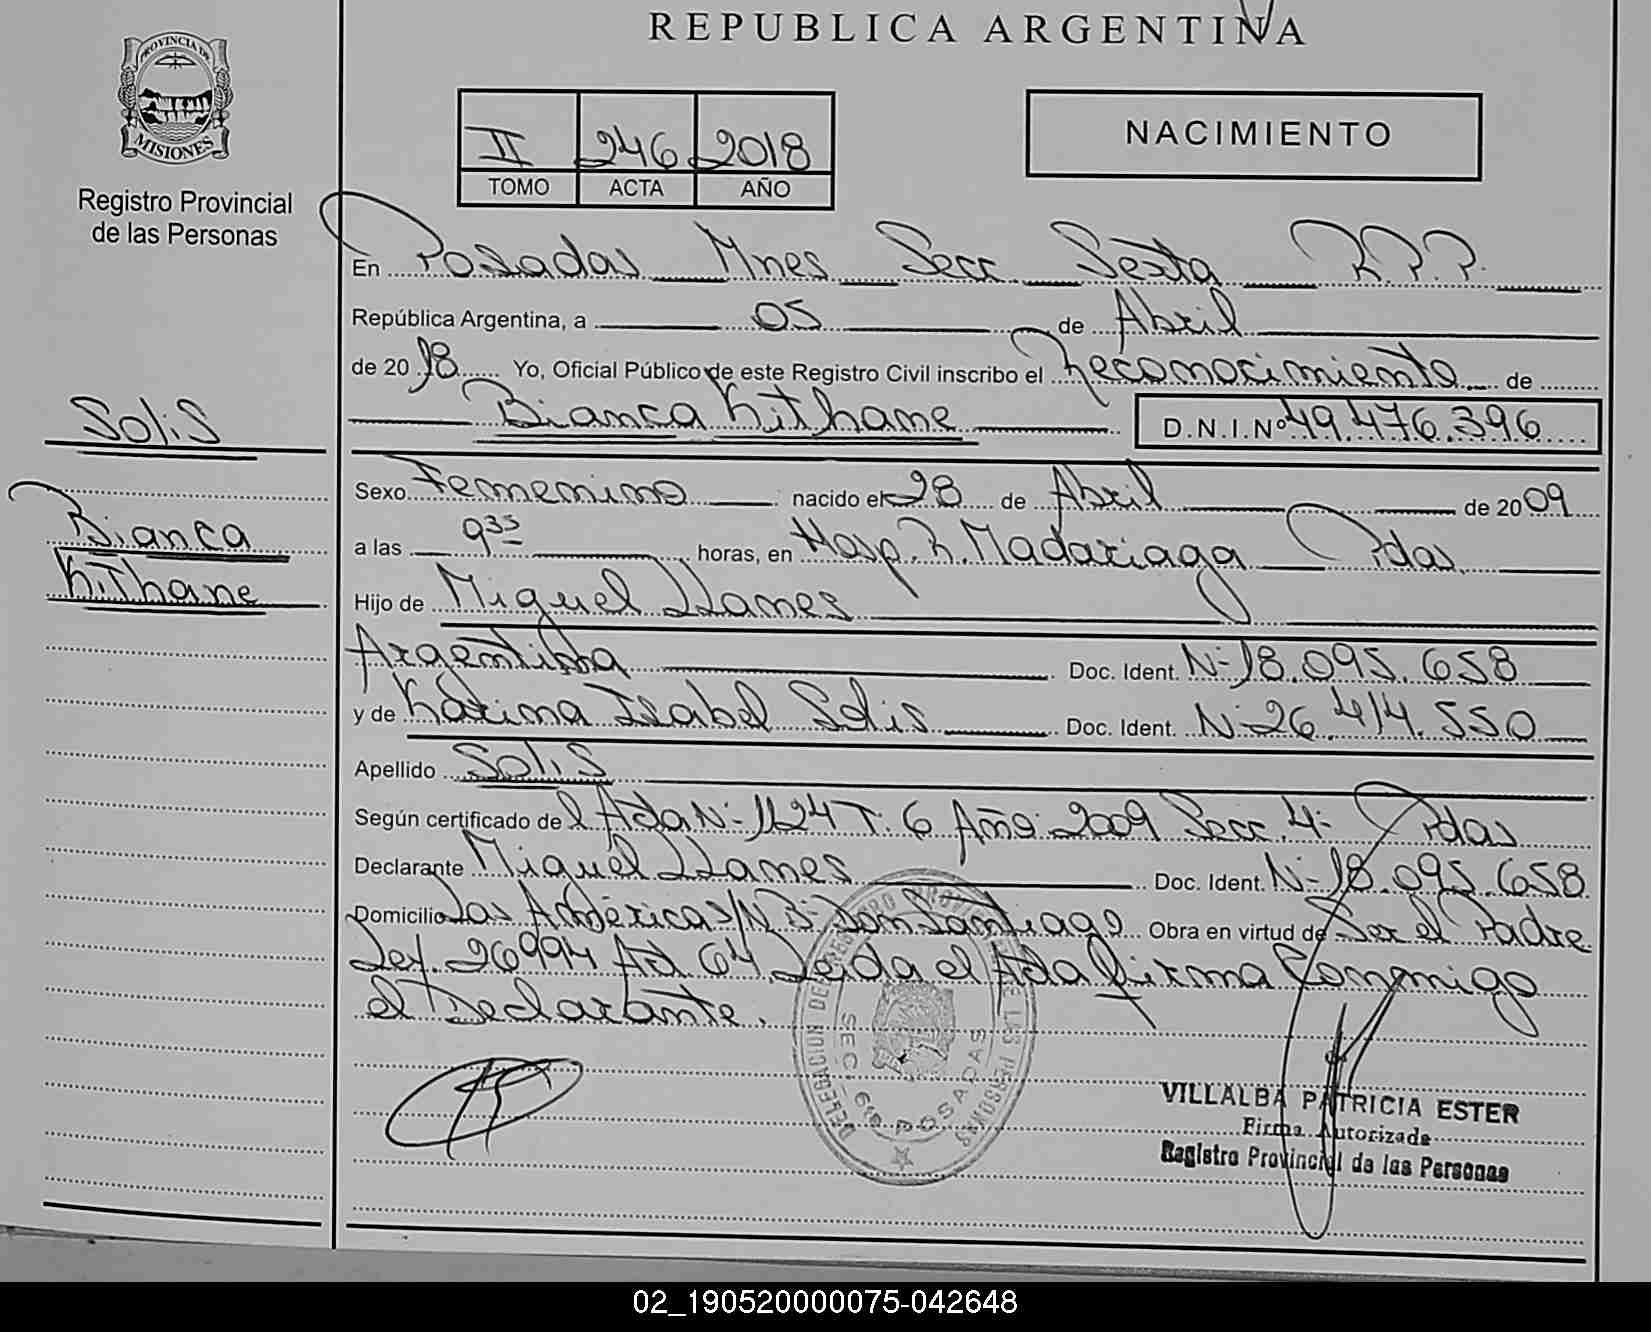 REPUBLICA ARGENTINA
PROVINCIA DE
MISIONES
Registro Provincial
de las Personas
II 246 2018
TOMO ACTA AÑO
NACIMIENTO
En Posadas Mnes Secc. Sexta R.P.P.
República Argentina, a 05 de Abril
de 2018 Yo, Oficial Público de este Registro Civil inscribo el Reconocimiento de
Bianca Kithane D.N.I.Nº 49.476.396
Solis
Bianca
Kithane
Sexo Femenino nacido el 28 de Abril de 2009
a las 9 35 horas, en Hosp. R. Madariaga Pdas.
Hijo de Miguel LLanes
Argentina Doc. Ident. Nº 18.095.658
y de Karina Isabel Solis Doc. Ident. Nº 26.414.550
Apellido Solis
Según certificado del Acta Nº 1124 T. 6 Año 2009 Secc. 4º Pdas
Declarante Miguel LLanes Doc. Ident. Nº 18.095.658
Domicilio Las Américas S/N Bº Don Santiago Obra en virtud de Ser el Padre
Ley. 26994 Art 64. Leida el Acta firma Conmigo
el Declarante.
DELEGACION DE REGISTRO PROVINCIAL DE LAS PERSONAS
SEC. 6ta POSADAS
VILLALBA PATRICIA ESTER
Firma Autorizada
Registro Provincial de las Personas
02_190520000075-042648